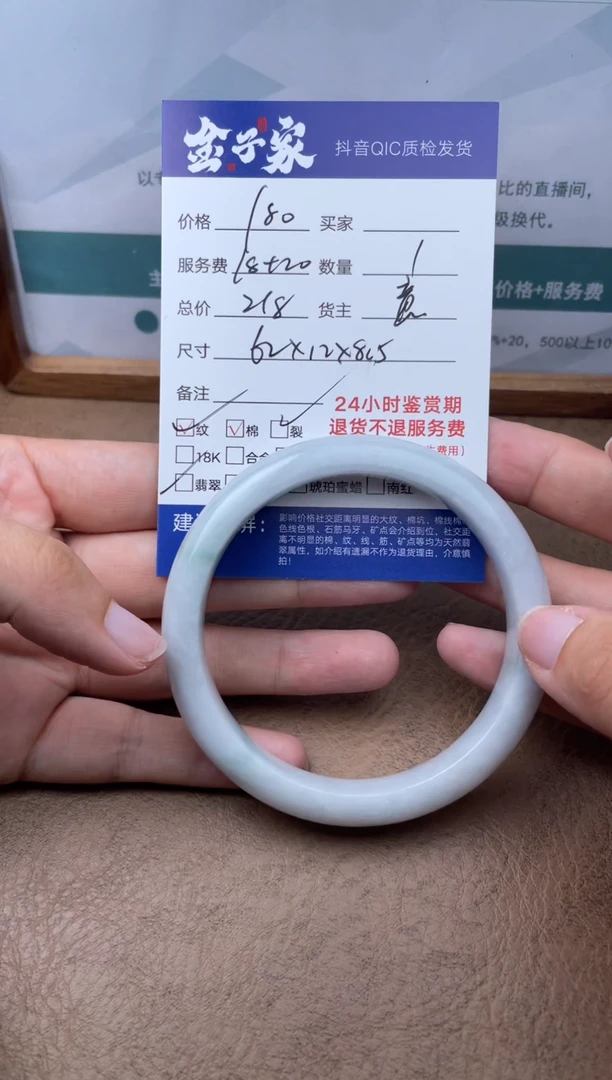 金子家 抖音QIC质检发货
价格 180 买家
服务费 18+20 数量 1
总价 218 货主
尺寸 62×12×8.5
备注
24小时鉴赏期
退货不退服务费
纹 棉 裂
18K
翡翠 琥珀蜜蜡 南红
影响价格社交距离明显的大纹、棉坑、棉线棉
色线色根、石筋马牙、矿点会介绍到位，社交距
离不明显的棉、纹、线、筋、矿点等均为天然翡
翠属性，如介绍有遗漏不作为退货理由，介意慎
拍！
比的直播间，
级换代。
价格+服务费
%+20，500以上10